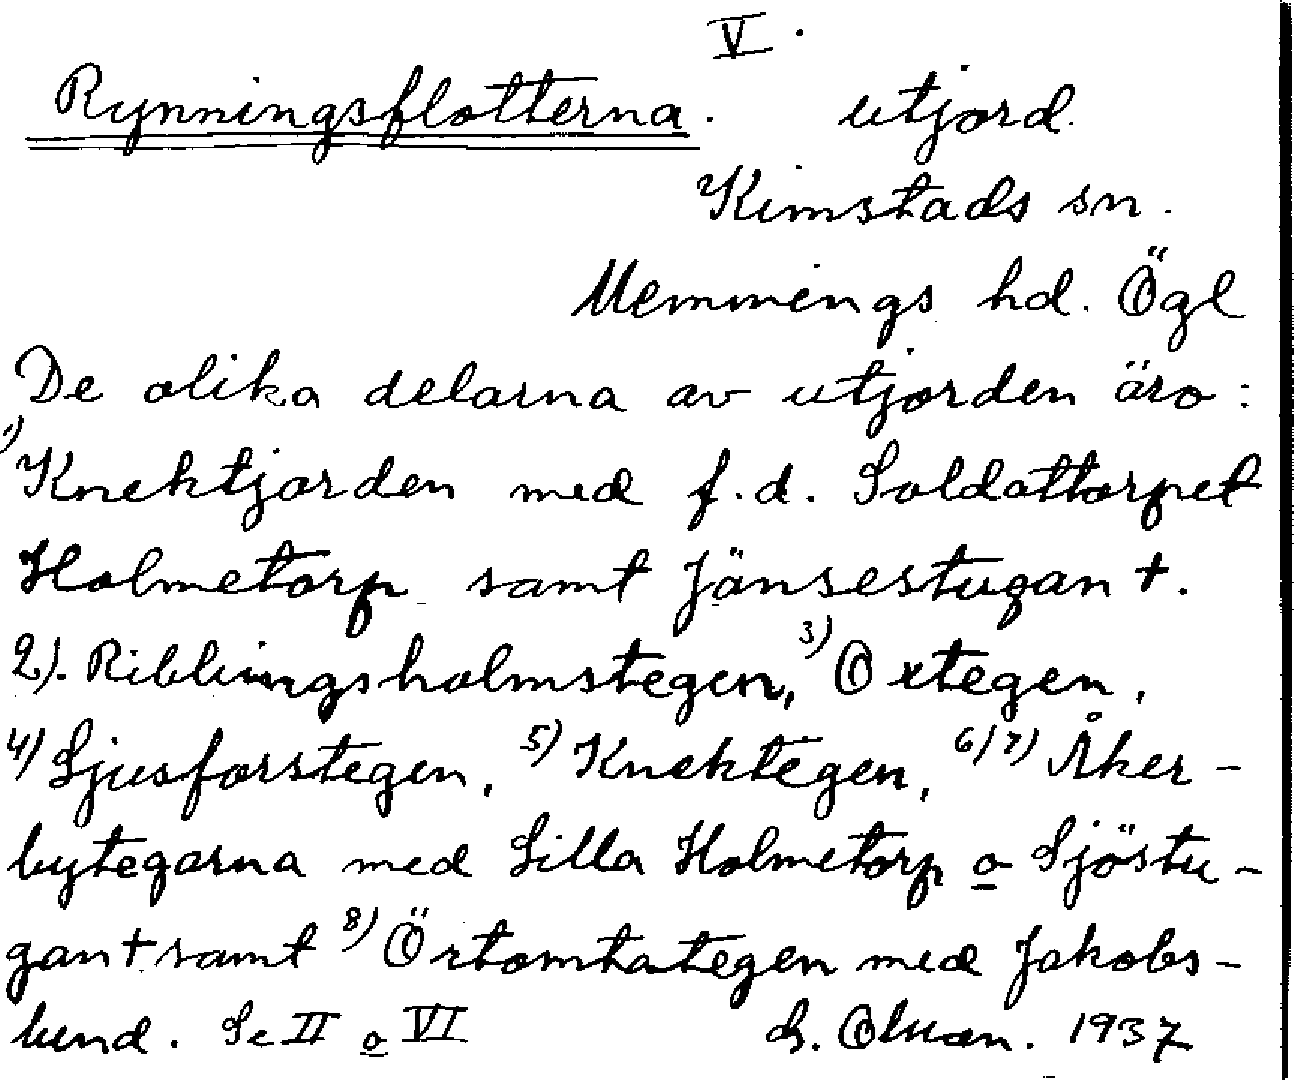 V.
Rynningsflotterna. utjord.
Kimstads sn.
Memmings hd. Ögl
De olika delarna av utjorden äro:
1) Knektjorden med f.d. Soldattorpet
Holmetorp samt Jänsestugan +.
2). Riblingsholmstegen, 3) Oxtegen,
4) Ljusforstegen, 5) Knektegen, 6) 7) Åker-
bytegarna med Lilla Holmetorp o Sjöstu-
gan + samt 8) Örtomtategen med Jakobs-
lund. Se II o VI 1937